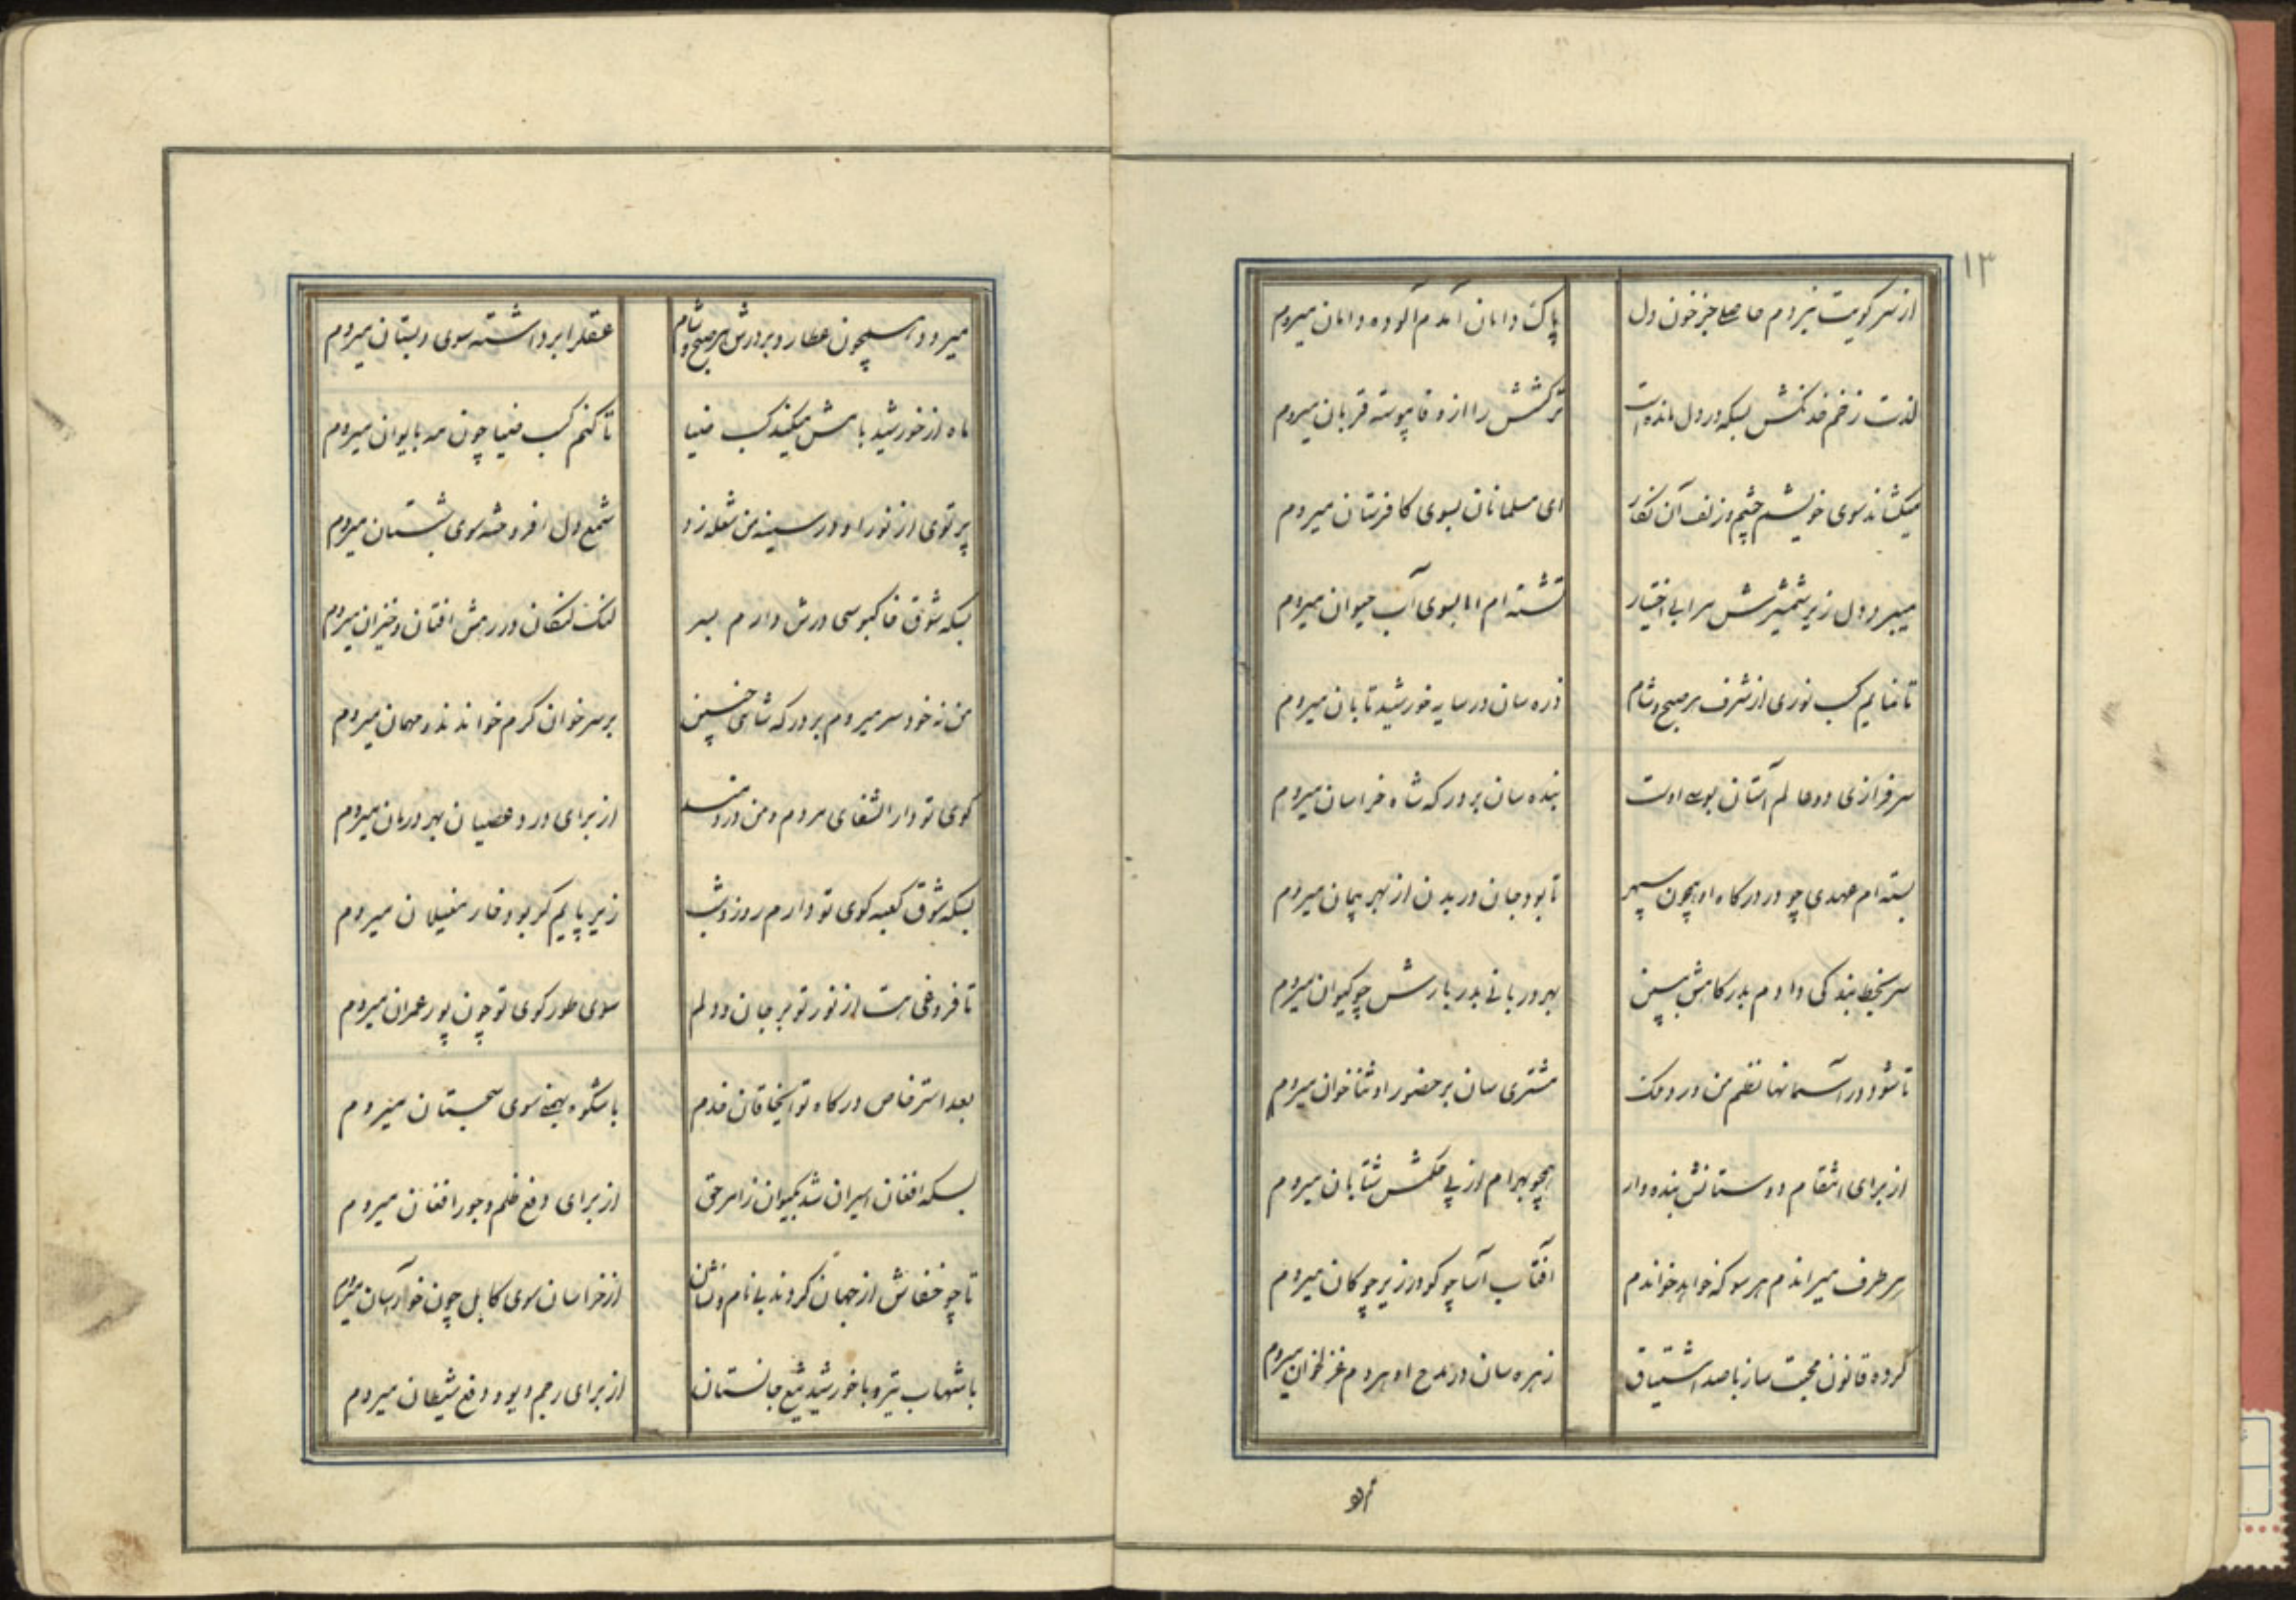 ۱۳
از سر کویت نبردم حاصلی جز خون دل
پاک دامان آمدم آلوده دامان میروم
لذت زخم خدنکش بسکه در دل مانده است
ترکشش را از وفا پیوسته قربان میروم
میکشاند سوی خویشم چشم و زلف آن نکار
ای مسلمانان بسوی کافرستان میروم
میبرد دل زیر شمشیرش مرا بی اختیار
تشنه ام اما بسوی آب حیوان میروم
تا نمایم کسب نوری از شرف هر صبح و شام
ذره سان در سایه خورشید تابان میروم
سرفرازی دو عالم آستان بوسی اوست
بنده سان بر درکه شاه خراسان میروم
بسته ام عهدی چو در درکاه او همچون سپهر
تا بود جان در بدن از بهر پیمان میروم
سر بخط بندکی دادم بدرکاهش ببین
بهر دربانی بدربارش چو کیوان میروم
تا شود در آسمانها نظم من ورد ملک
مشتری سان بر حضور او ثنا خوان میروم
از برای انتقام دوستانش بنده وار
همچو بهرام از پی حکمش شتابان میروم
هر طرف میراندم هر سو که خواهد خواندم
آفتاب آسا چو کو در زیر چوکان میروم
کرده قانون محبت ساز با صد اشتیاق
زهره سان در مدح او هر دم غزلخوان میروم
میرود همچون عطارد بر درش هر صبح و شام
عقل را برداشته سوی دبستان میروم
ماه از خورشید بامش میکند کسب ضیا
تا کنم کسب ضیا چون مه بایوان میروم
پرتوی از نور او در سینه من شعله زد
شمع دل افروخته سوی شبستان میروم
بسکه شوق خاکبوسی درش دارم بسر
لنک لنکان در رهش افتان و خیزان میروم
من نه خود سر میروم بر درکه شاهی چنین
بر سر خوان کرم خواندند مهمان میروم
کوی تو دار الشفای مردم و من دردمند
از برای درد عصیان بهر درمان میروم
بسکه شوق کعبه کوی تو دارم روز و شب
زیر پایم کر بود خار مغیلان میروم
تا فروغی هست از نور تو بر جان و دلم
سوی طور کوی تو چون پور عمران میروم
بعد استرخاص درکاه تو ایخاقان خدم
با شکوه بهمنی سوی سجستان میروم
بسکه افغان اسیران شد بکیوان ز امر حق
از برای دفع ظلم و جور افغان میروم
تا چو خفاش از جهان کردند بی نام و نشان
از خراسان سوی کابل چون خور آسان میروم
با شهاب تیر و با خورشید تیغ جانستان
از برای رجم دیو و دفع شیطان میروم